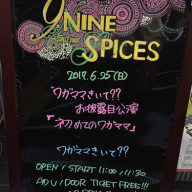 9NINE
SPICES
2017.6.25(日)
ワガママきいて??
お披露目公演
『初めてのワガママ』
ワガママきいて??
OPEN / START 11:00 / 11:30
ADV / DOOR TICKET FREE!!!